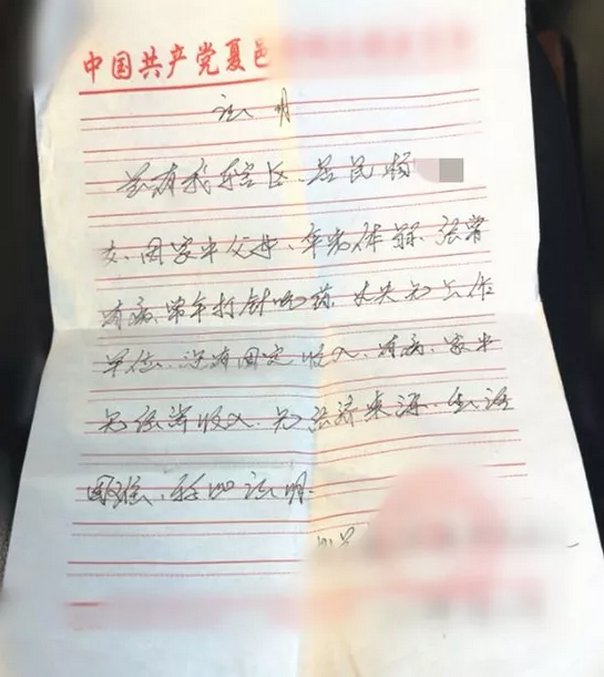 中国共产党夏邑
证明
兹有我辖区居民杨
女、因家中父母、年老体弱、经常
有病、常年打针吃药、丈夫无工作
单位、没有固定收入、有病、家中
无经济收入、无经济来源、生活
困难、特此证明.